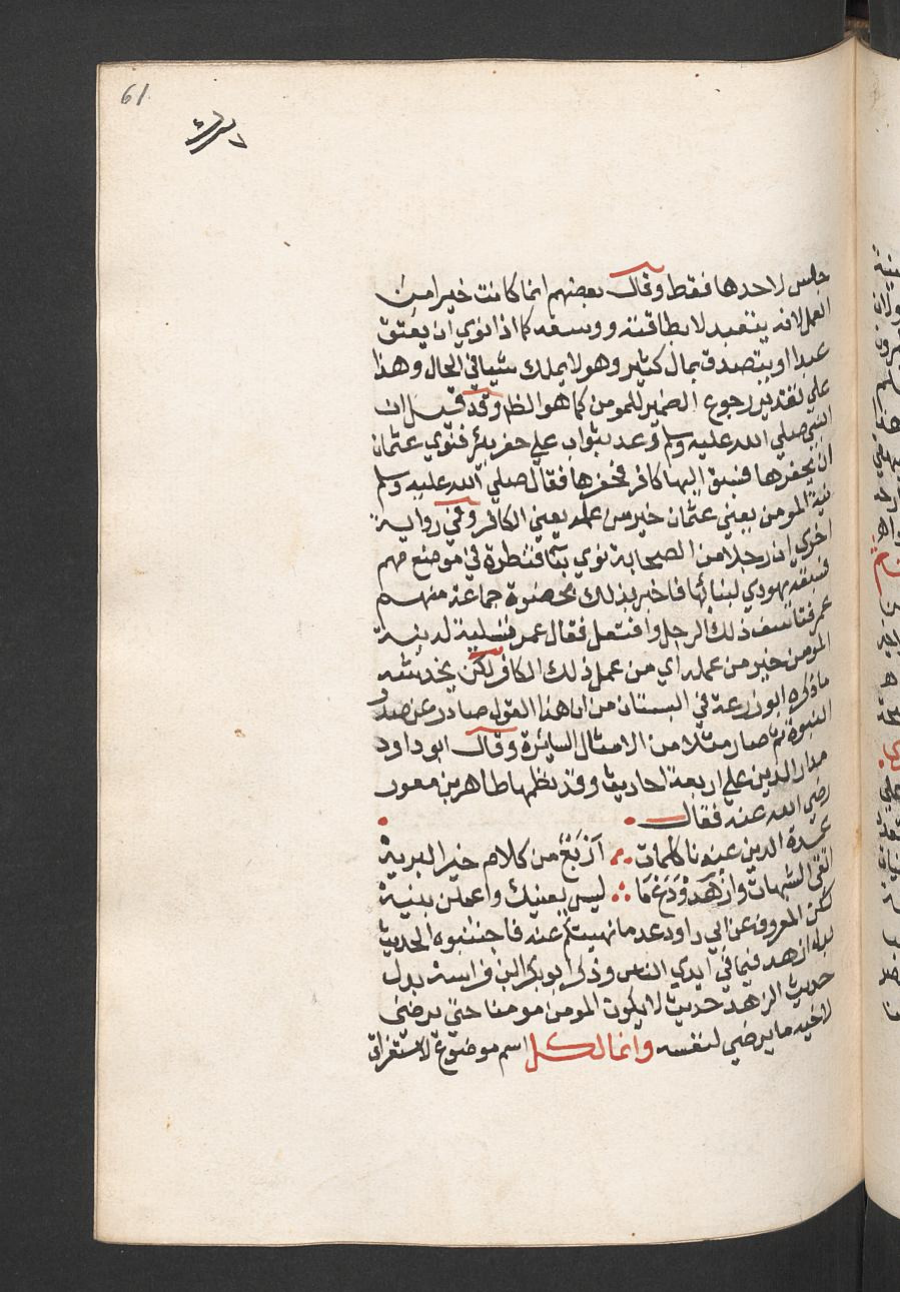 61
جلس لاحدها فقط وقال بعضهم انما كانت خيرا من
العمل لانه يتقيد لا بطاقته ووسعه كما اذا نوي ان يعتق
عبدا او يتصدق بمال كثير وهو لا يملك شيا في الحال وهذا
علي تقدير رجوع الضمير للمومن كما هو الظ وقد قيل ان
النبي صلي الله عليه وسلم وعد بثواب علي حفر بئر فنوي عثمان
ان يحفرها فسبق اليها كافر فحفرها فقال صلي الله عليه وسلم
نية المومن يعني عثمان خير من عمله يعني الكافر وفي رواية
اخري ان رجلا من الصحابة نوي بنا قنطرة في موضع مهم
فسبقه يهودي لبنائها فاخبر بذلك بحضرة جماعة منهم
عمر فتاسف ذلك الرجل وافتعل فقال عمر تسلية له نية
المومن خير من عمله اي من عمل ذلك الكافر لكن يخدشه
ماذكره ابو زرعة في البستان من ان هذا القول صادر عن صدر
النبوة ثم صار مثلا من الامثال السائرة وقال ابو داود
مدار الدين علي اربعة احاديث وقد نظمها طاهر بن معور
رضي الله عنه فقال
عمدة الدين عندنا كلمات أربع من كلام خير البرية
اتقي الشبهات وازهد ودع ما ليس يعنيك واعملن بنية
لكن المعروف عن ابي داود عد ما نهيتكم عنه فاجتنبوه الحديث
بدل ازهد فيما في ايدي الناس وذكر ابو بكر ابن فراسة بدل
حديث الزهد حديث لا يكون المومن مومنا حتي يرضي
لاخيه ما يرضي لنفسه وانما لكل اسم موضوع لاستغراق